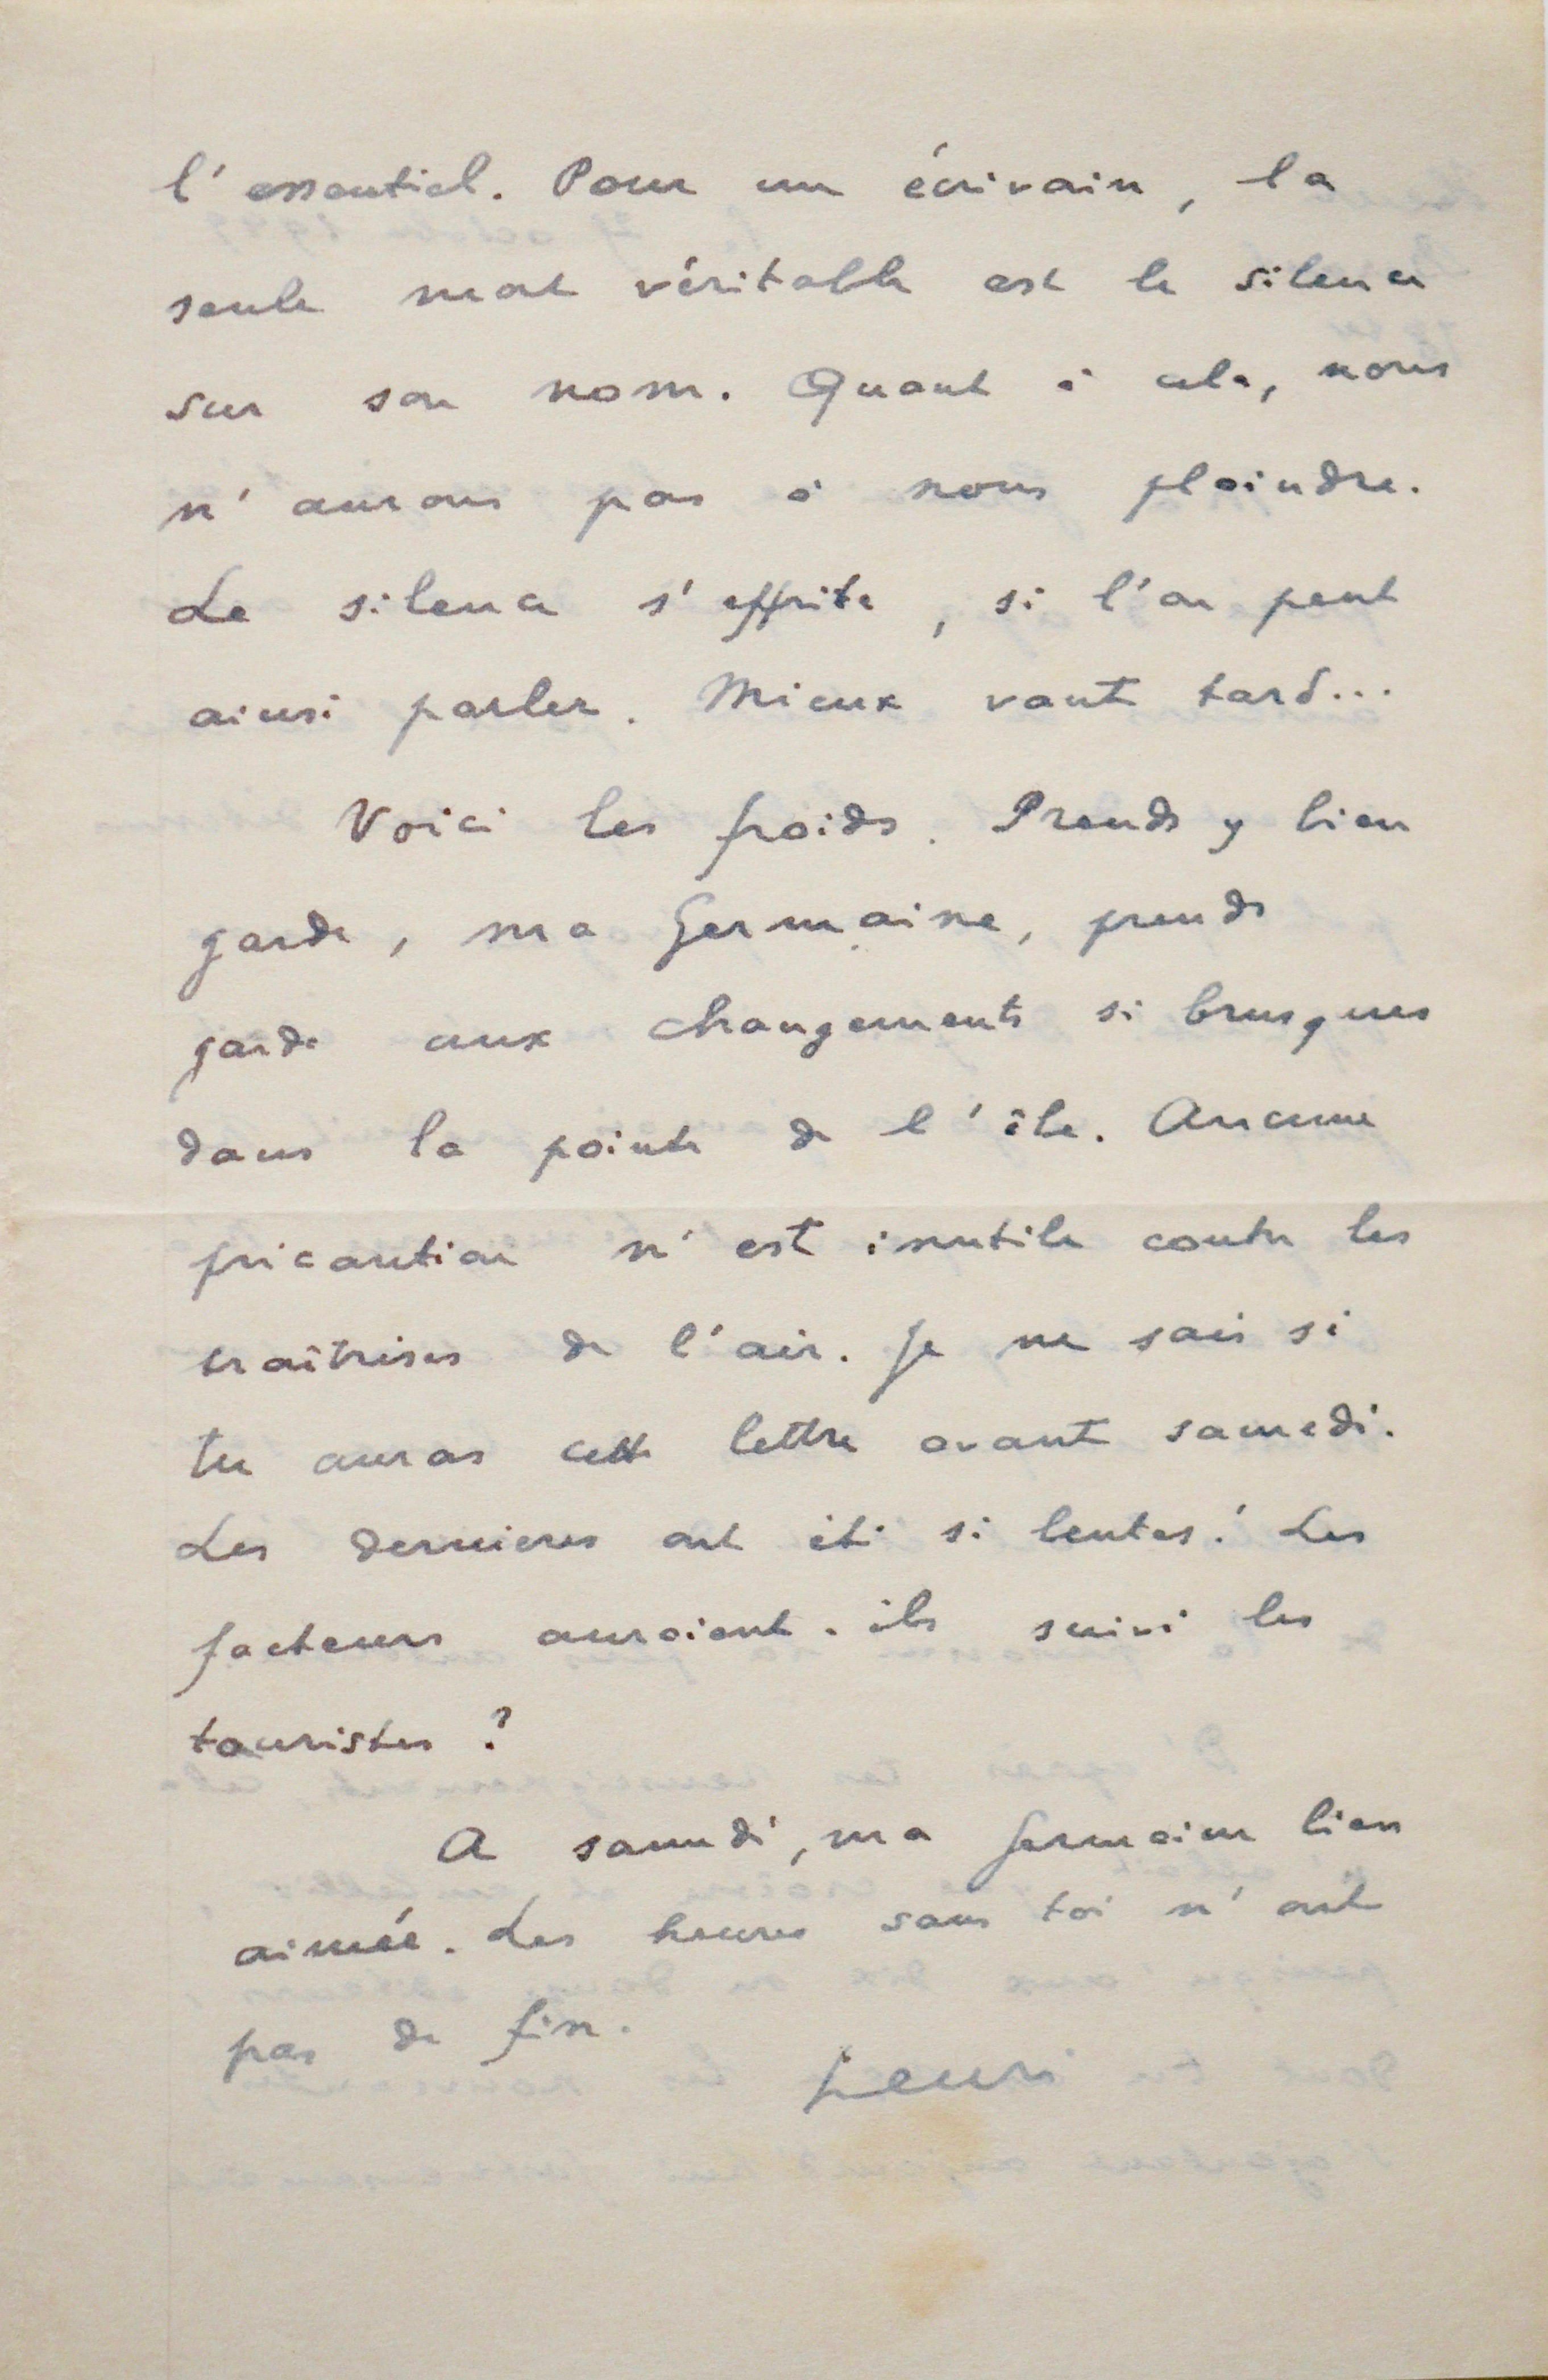 l'essentiel. Pour un écrivain, la
seule mort véritable est le silence
sur son nom. Quant à cela, nous
n'aurons pas à nous plaindre.
Le silence s'effrite, si l'on peut
ainsi parler. Mieux vaut tard...
Voici les froids. Prends y bien
garde, ma Germaine, prends
garde aux changements si brusques
dans la pointe de l'île. Aucune
précaution n'est inutile contre les
traîtrises de l'air. Je ne sais si
tu auras cette lettre avant samedi.
Les dernières ont été si lentes! Les
facteurs auraient-ils suivi les
touristes ?
A samedi, ma Germaine bien
aimée. Les heures sans toi n'ont
pas de fin.
Henri